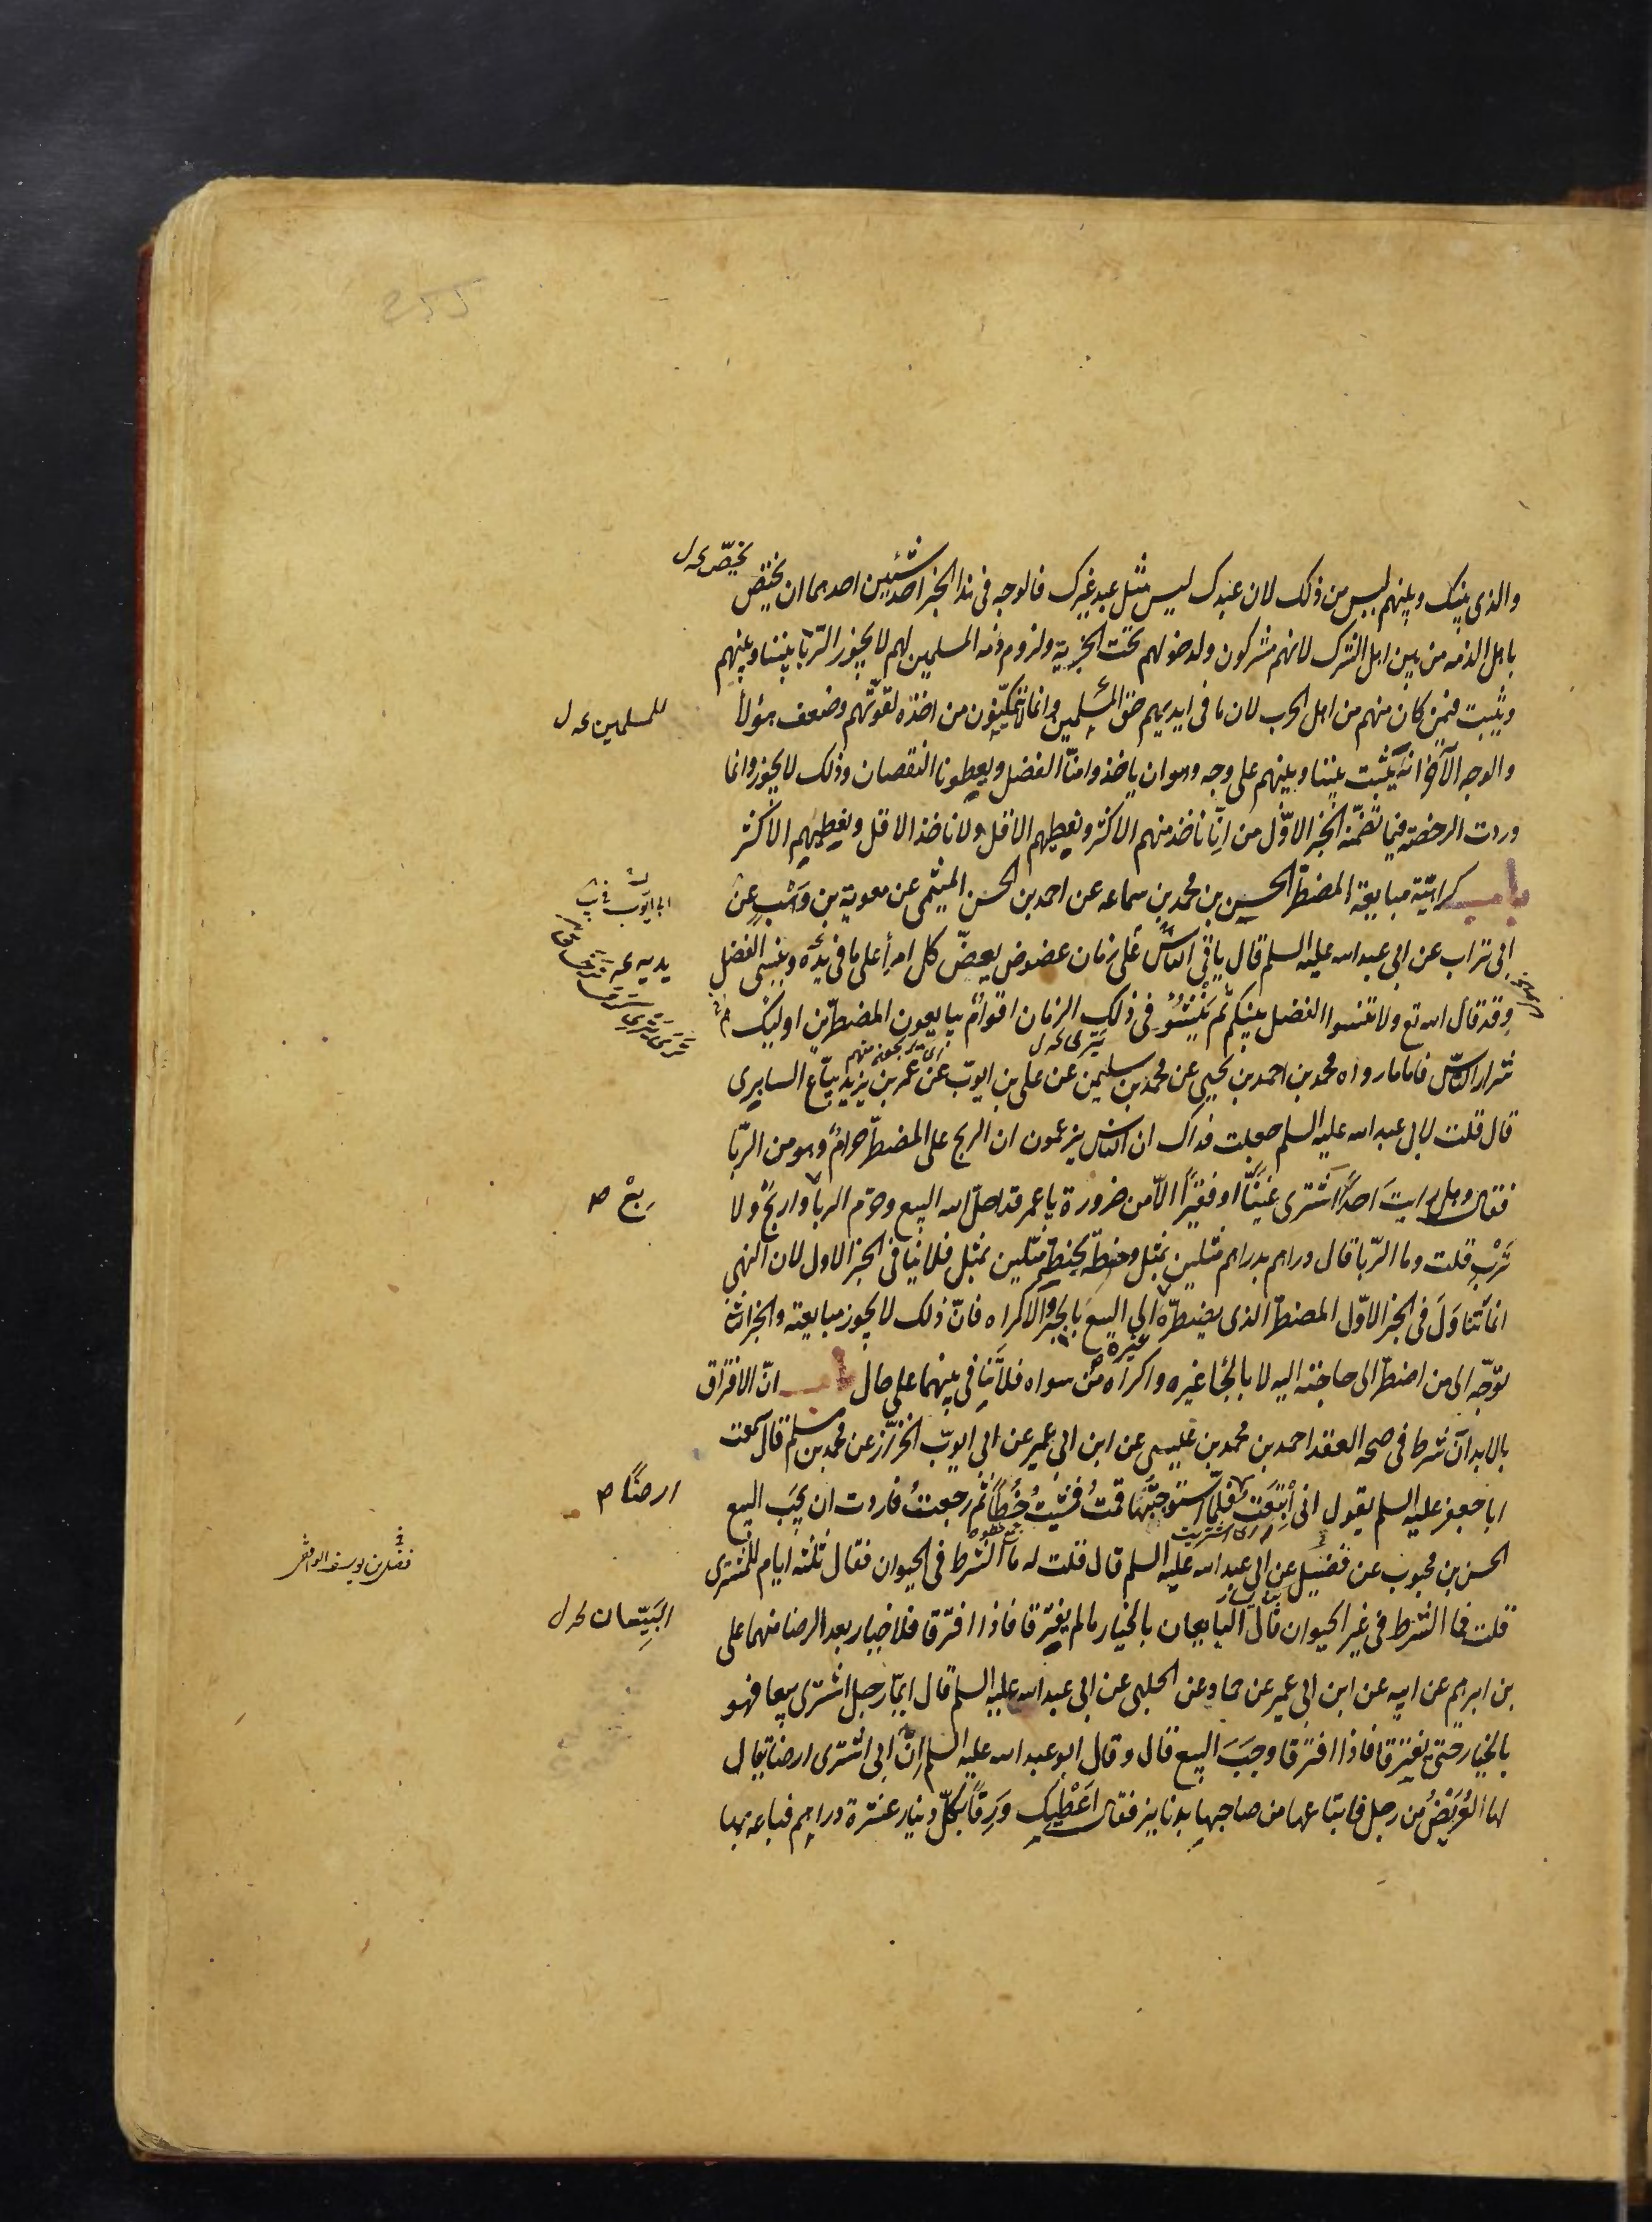 255
يختص نه ل
والذي بينك وبينهم ليس من ذلك لان عبدك ليس مثل عبد غيرك فالوجه في هذا الخبر احد شيئين احدهما ان يختص
باهل الذمه من بين اهل الشرك لانهم مشركون ولدخولهم تحت الجزية ولزوم ذمه المسلمين لهم لا يجوز الربا بيننا وبينهم
ويثبت فيمن كان منهم من اهل الحرب لان ما في ايديهم حق المسلمين وانما لا يتمكنون من اخذه لقوتهم وضعف هؤلأ
للمسلمين نه ل
والوجه الآخر انه يثبت بيننا وبينهم على وجه وهو ان ياخذوا منا الفضل ويعطونا النقصان وذلك لا يجوز وانما
وردت الرخصة فيما تضمنه الخبر الاوّل من انّا ناخذ منهم الاكثر ونعطيهم الاقل ولا ناخذ الاقل ونعطيهم الاكثر
باب كراهية مبايعة المضطر الحسين بن محمد بن سماعه عن احمد بن الحسن الميثمى عن معوية بن وَهْبٍ عن
ابى ايّوب
ابى تراب عن ابى عبد الله عليه السلم قال ياتى الناس على زمان عضوض يعضّ كل امرأ على ما في يده وينسى الفضل
يديه
وقد قال الله تع ولا تنسوا الفضل بينكم ثم ينشؤ في ذلك الزمان اقوامٌ يبايعون المضطرين اوليك هم
شرار الناس فاما ما رواه محمد بن احمد بن يحيى عن محمد بن سليمن عن على بن ايوب عن عمر بن يزيد بيّاع السابرى
قال قلت لابى عبد الله عليه السلم جعلت فداك ان الناس يزعمون ان الربح على المضطرّ حرامٌ وهو من الرّبا
فقال وهل رايتَ احدًا اشترى غنيًّا او فقيرًا الّا من ضرورة يا عمر قد احلّ الله البيع وحرّم الربا واربَحْ ولا
ربحْ
تُرْبِ قلت وما الرّبا قال دراهم بدراهم مثلين بمثل وحنطة بحنطة مثلين بمثل فلا ينافى الخبر الاول لان النهى
انما تناوَلَ فى الخبر الاوّل المضطر الذى يضطرّه الى البيع بالجبر والاكراه فانّ ذلك لا يجوز مبايعته والخبر الثانى
توجّه الى من اضطرّ الى حاجته اليه لا بالجاء غيره واكراه من سواه فلا تنافى بينهما على حال باب انّ الافتراق
غيره
بالابدان شرط فى صحه العقد احمد بن محمد بن عيسى عن ابن ابى عمير عن ابى ايوبّ الخزّاز عن محمد بن مسلم قال سمعت
ابا جعفر عليه السلم يقول انى ابْتَعْتُ فلمّا استوجبتُها قمتُ فمشيتُ خُطًأ ثم رجعتُ فاردت ان يجب البيع
ارضًا
الحسن بن محبوب عن فضيل عن ابى عبد الله عليه السلم قال قلت له ما الشرط فى الحيوان فقال ثلثه ايام للمشترى
قلت فما الشرط فى غير الحيوان قال البايعان بالخيار ما لم يفترقا فاذا افترقا فلا خيار بعد الرضا منهما على
البَيّعان نه ل
بن ابرهيم عن ابيه عن ابن ابى عمير عن حماد عن الحلبى عن ابى عبد الله عليه السلم قال ايّما رجل اشترى بيعا فهو
بالخيار حتى يفترقا فاذا افترقا وجبَ البيع قال وقال ابو عبد الله عليه السلم انّ ابى اشترى ارضا يقال
لها العُرَيْضُ من رجل فابتاعها من صاحبها بدنانير فقال اعطيك وَرِقًا بكلّ دينار عشرة دراهم فباعه بها